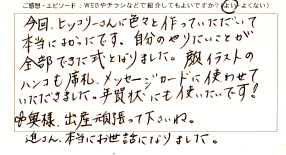 ご感想・エピソード:WEBやチラシなどで紹介してもよいですか?(よい・よくない)
今回、ヒッコリーさんに色々と作っていただいて
本当によかったです。自分のやりたいことが
全部できた式となりました。似顔イラストの
ハンコも席札、メッセージカードに使わせて
いただきました。年賀状にも使いたいです!
奥様、出産頑張って下さいね。
迫さん、本当にお世話になりました。